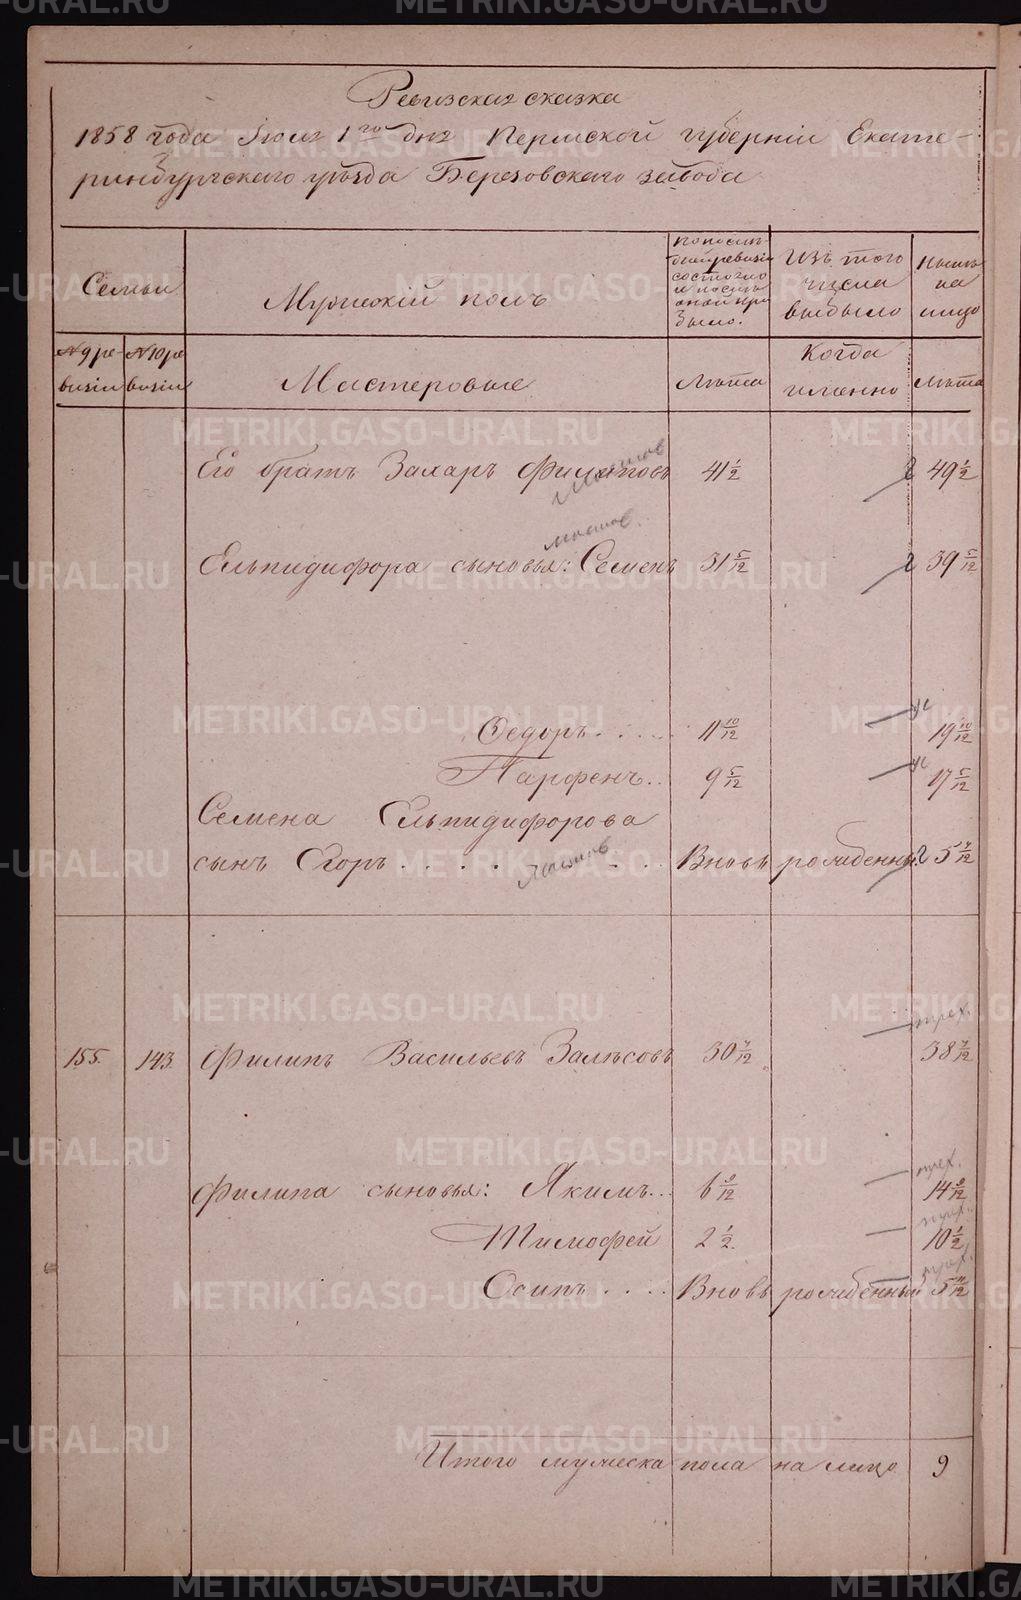 Ревизская сказка
1858 года Июня 1го дня Пермской губернiи Екате-
ринбургскаго уѣзда Березовскаго завода
Семьи
Мужескiй полъ
по послѣ-
дней ревизiи
состояло
и послѣ
оной при
было.
Изъ того
числа
выбыло
Нынѣ
на
лицо
№ 9 ре-
визiи
№ 10 ре
визiи
Мастеровые
Лѣта
Когда
именно
Лѣта
Его братъ Захаръ Филиповъ 41 1/2 49 1/2
Ельпидифора сыновья: Семенъ 31 5/12 39 5/12
Ѳедоръ..... 11 10/12 19 10/12
Парфенъ.. 9 5/12 17 5/12
Семена Ельпидифорова
сынъ Егоръ........ Вновь рожденный 5 7/12
155. 143. Филипъ Васильевъ Залѣсовъ 30 7/12 38 7/12
Филипа сыновья: Якимъ... 6 9/12 14 9/12
Тимофей 2 1/2. 10 1/2
Осипъ.... Вновь рожденный 5 11/12
Итого мужеска пола на лицо 9
METRIKI.GASO-URAL.RU